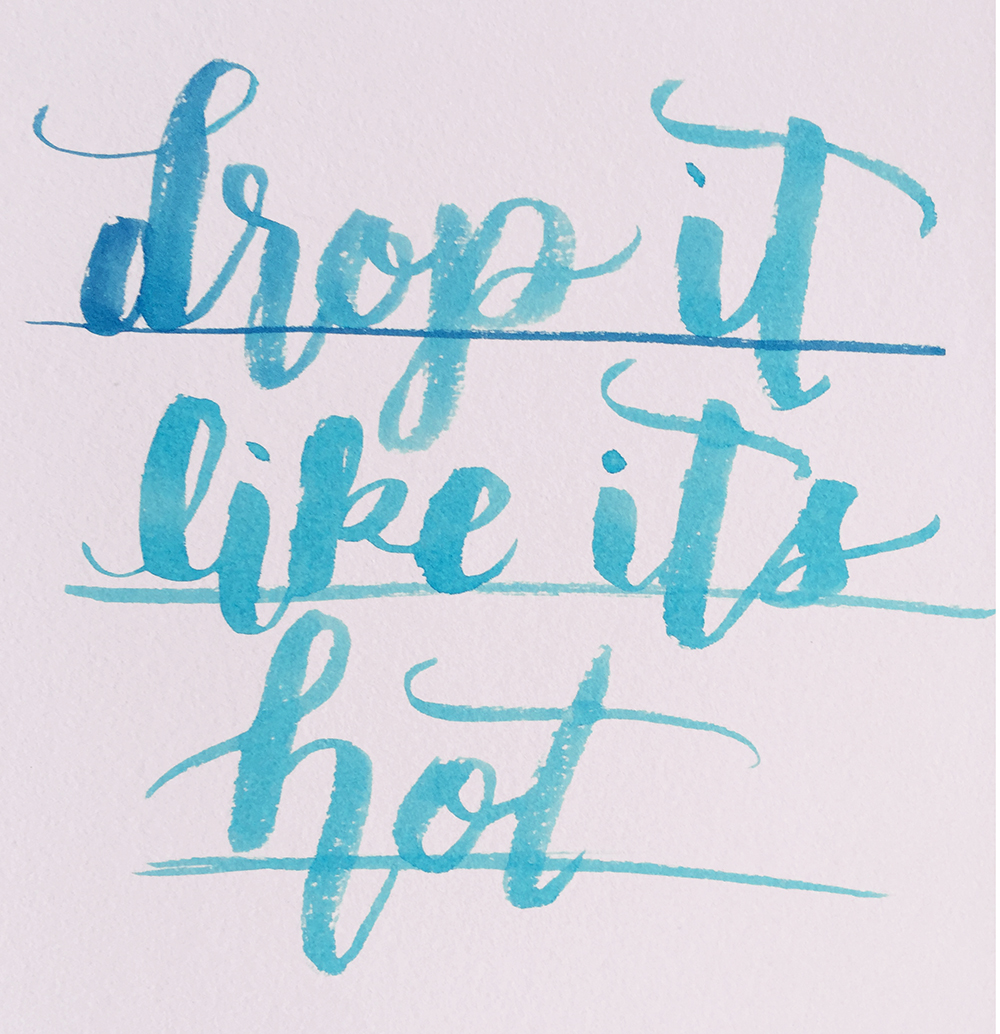 drop it
like its
hot